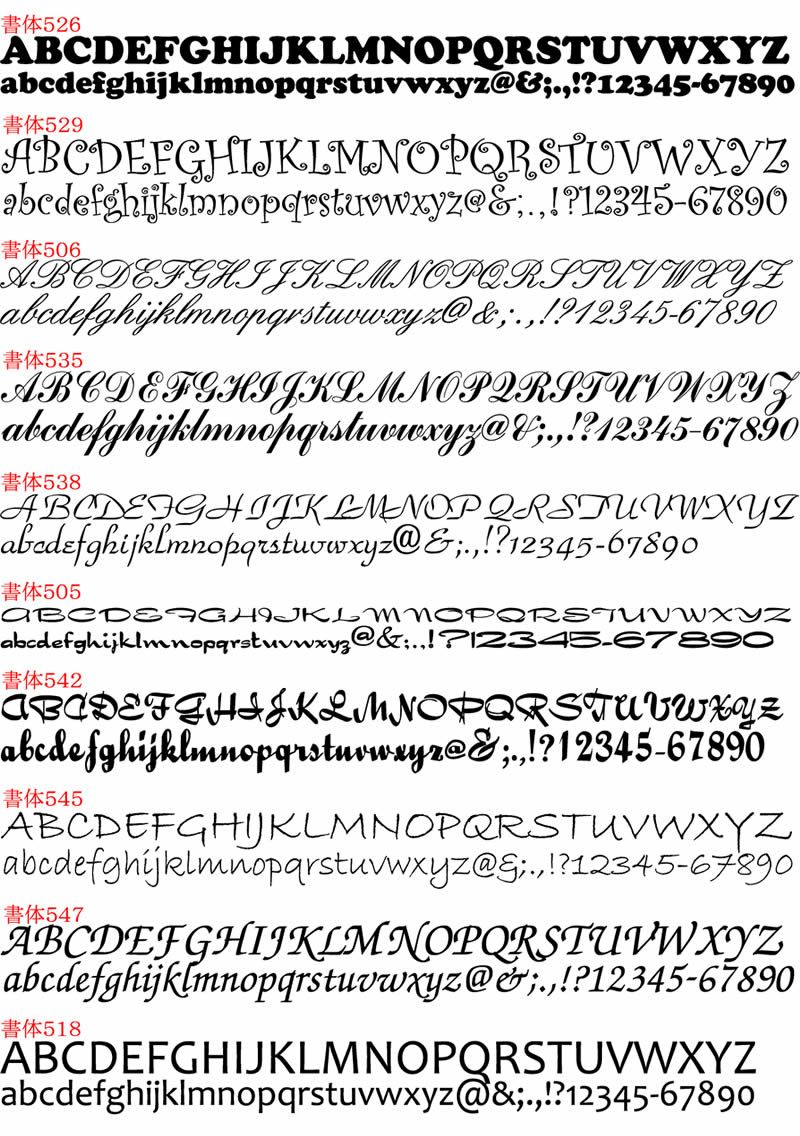 書体526
ABCDEFGHIJKLMNOPQRSTUVWXYZ
abcdefghijklmnopqrstuvwxyz@&;.,!?12345-67890
書体529
ABCDEFGHIJKLMNOPQRSTUVWXYZ
abcdefghijklmnopqrstuvwxyz@&;.,!?12345-67890
書体506
ABCDEFGHIJKLMNOPQRSTUVWXYZ
abcdefghijklmnopqrstuvwxyz@&;.,!?12345-67890
書体535
ABCDEFGHIJKLMNOPQRSTUVWXYZ
abcdefghijklmnopqrstuvwxyz@&;.,!?12345-67890
書体538
ABCDEFGHIJKLMNOPQRSTUVWXYZ
abcdefghijklmnopqrstuvwxyz@&;.,!?12345-67890
書体505
ABCDEFGHIJKLMNOPQRSTUVWXYZ
abcdefghijklmnopqrstuvwxyz@&;.,!?12345-67890
書体542
ABCDEFGHIJKLMNOPQRSTUVWXYZ
abcdefghijklmnopqrstuvwxyz@&;.,!?12345-67890
書体545
ABCDEFGHIJKLMNOPQRSTUVWXYZ
abcdefghijklmnopqrstuvwxyz@&;.,!?12345-67890
書体547
ABCDEFGHIJKLMNOPQRSTUVWXYZ
abcdefghijklmnopqrstuvwxyz@&;.,!?12345-67890
書体518
ABCDEFGHIJKLMNOPQRSTUVWXYZ
abcdefghijklmnopqrstuvwxyz@&;.,!?12345-67890